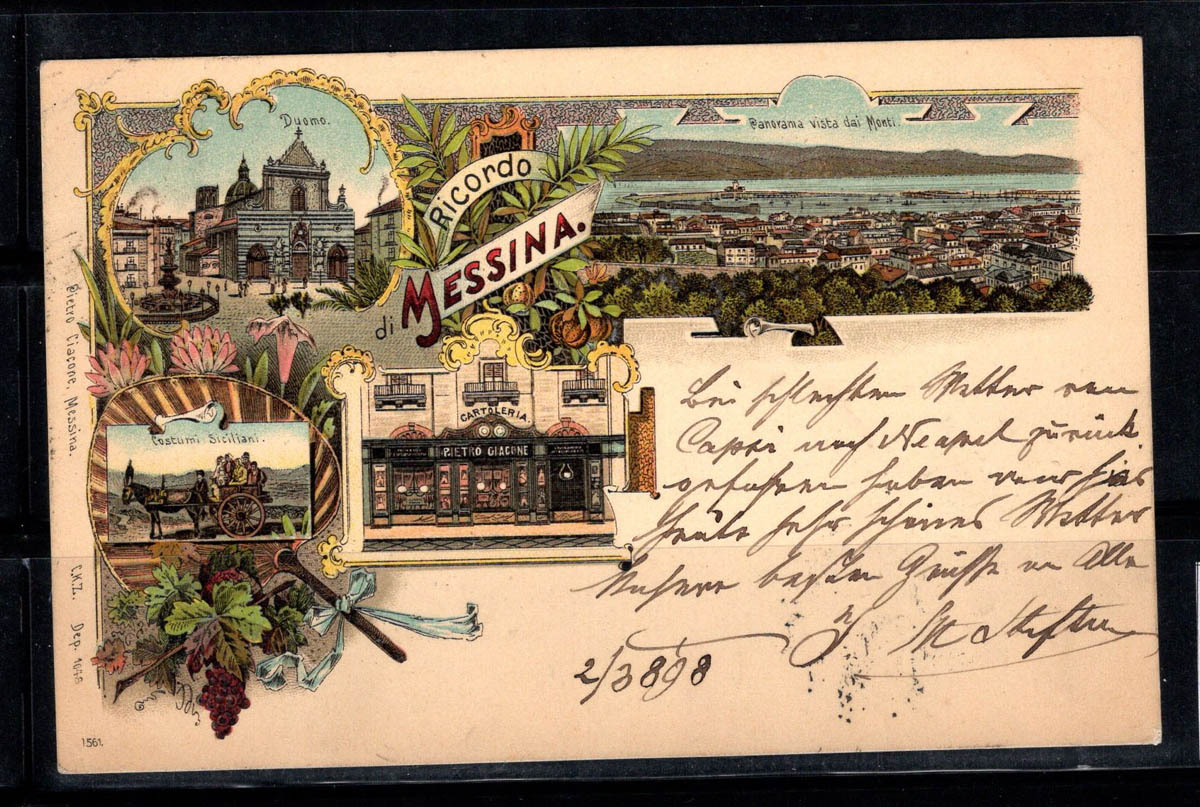 Duomo.
Panorama vista dai Monti.
Ricordo
di MESSINA.
CARTOLERIA
PIETRO GIACONE
Costumi Siciliani.
Pietro Giacone, Messina.
C.K.Z. Dep. 1048
1561.
Bei schlechtem Wetter von
Capri nach Neapel zurück
gefahren haben wir hier
heute sehr schönes Wetter
Unsere besten Grüsse an Alle
2/3 898